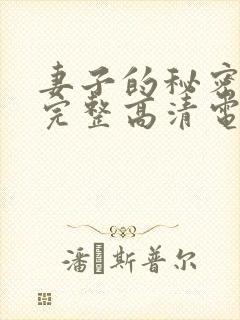 妻子的秘密
完整高清電
潘 斯普尔